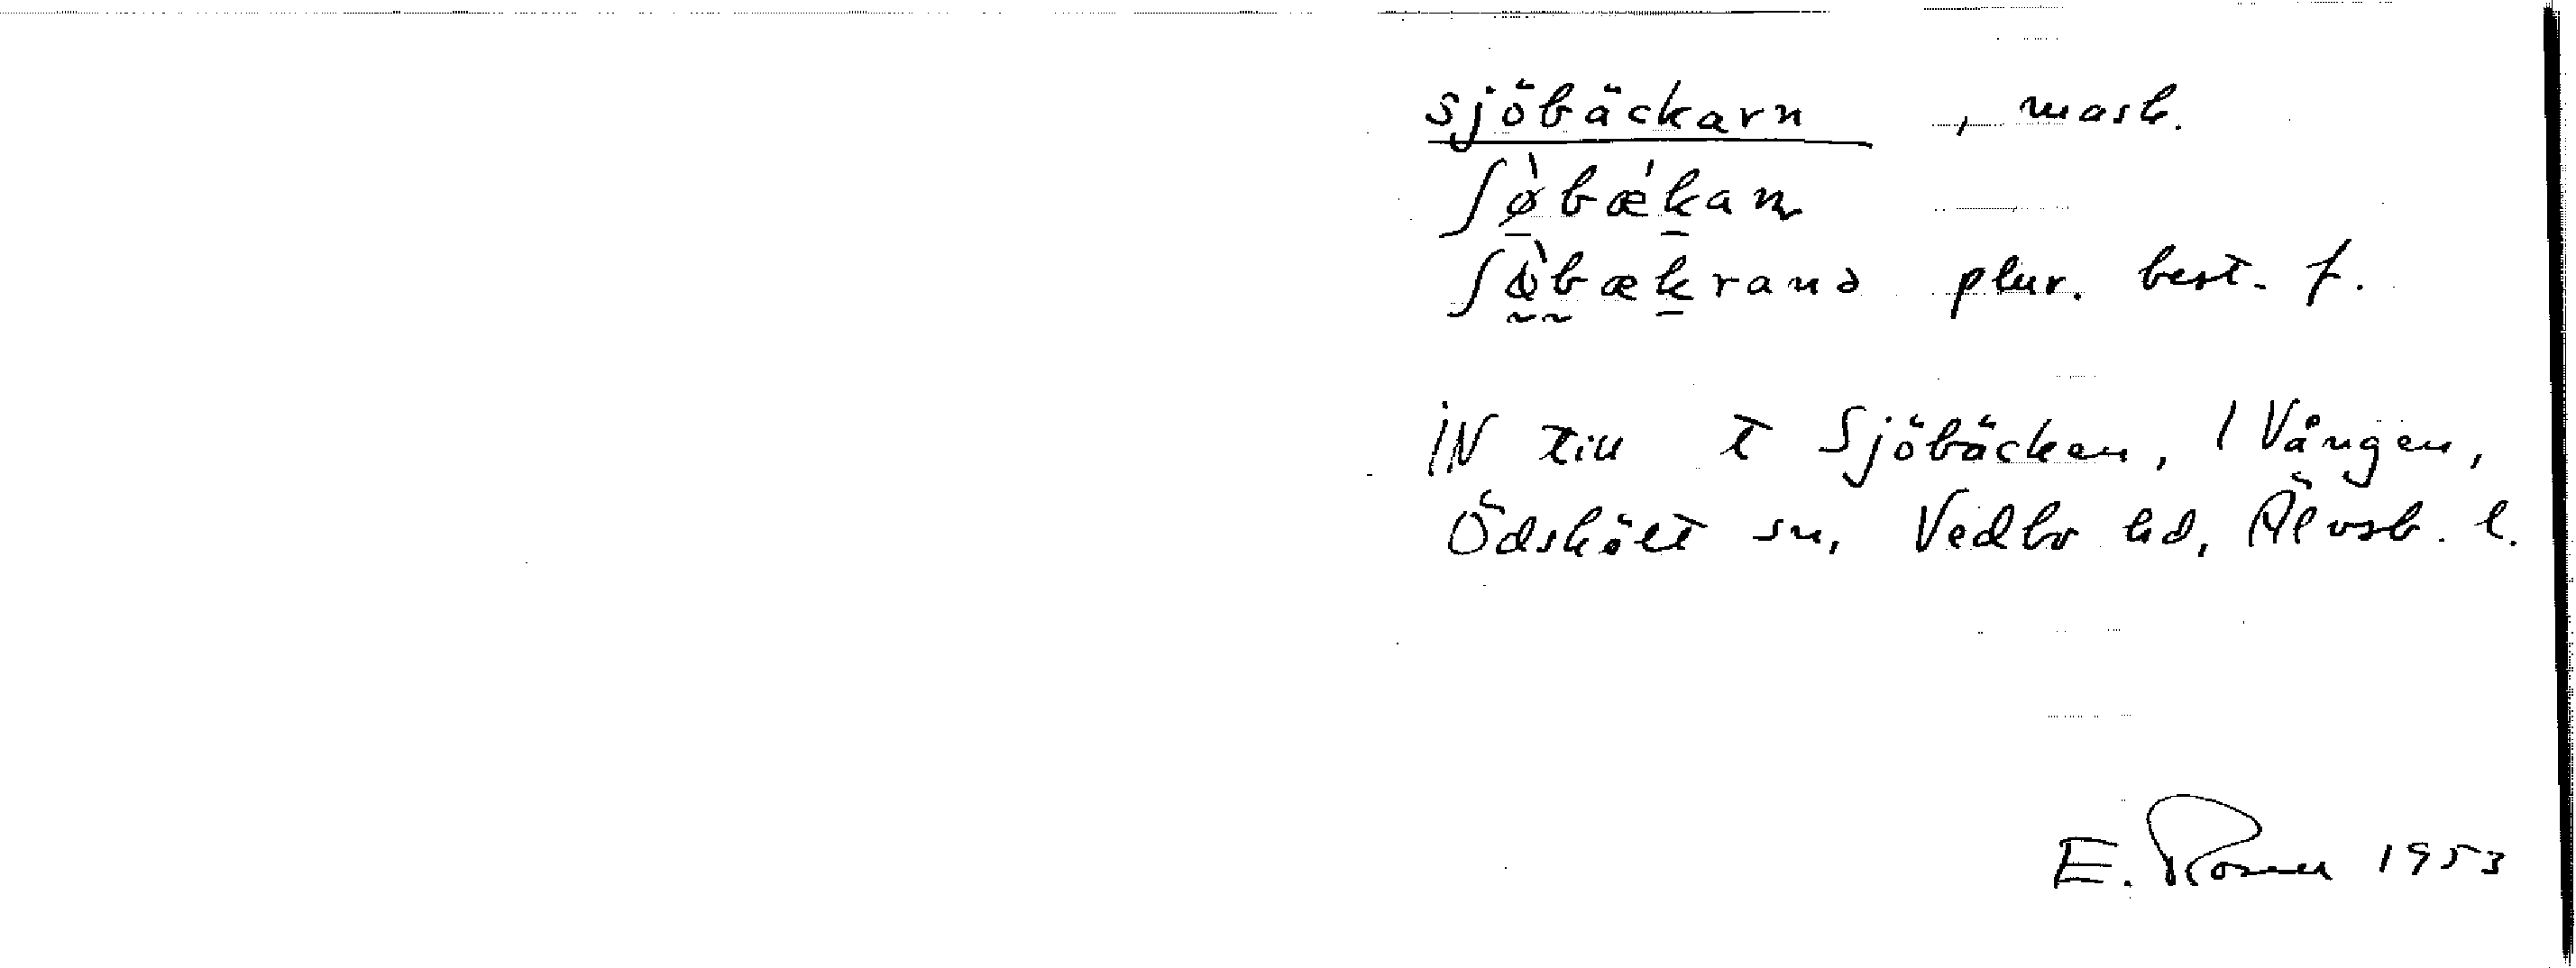 sjöbäckarn , mask.
ʃø̀bǽkaṇ
ʃø̀bækranə plur. best. f.
IN till t Sjöbäcken, 1 Vången,
Ödskölt sn, Vedbo hd, Älvsb. l.
E. Rosell 1953